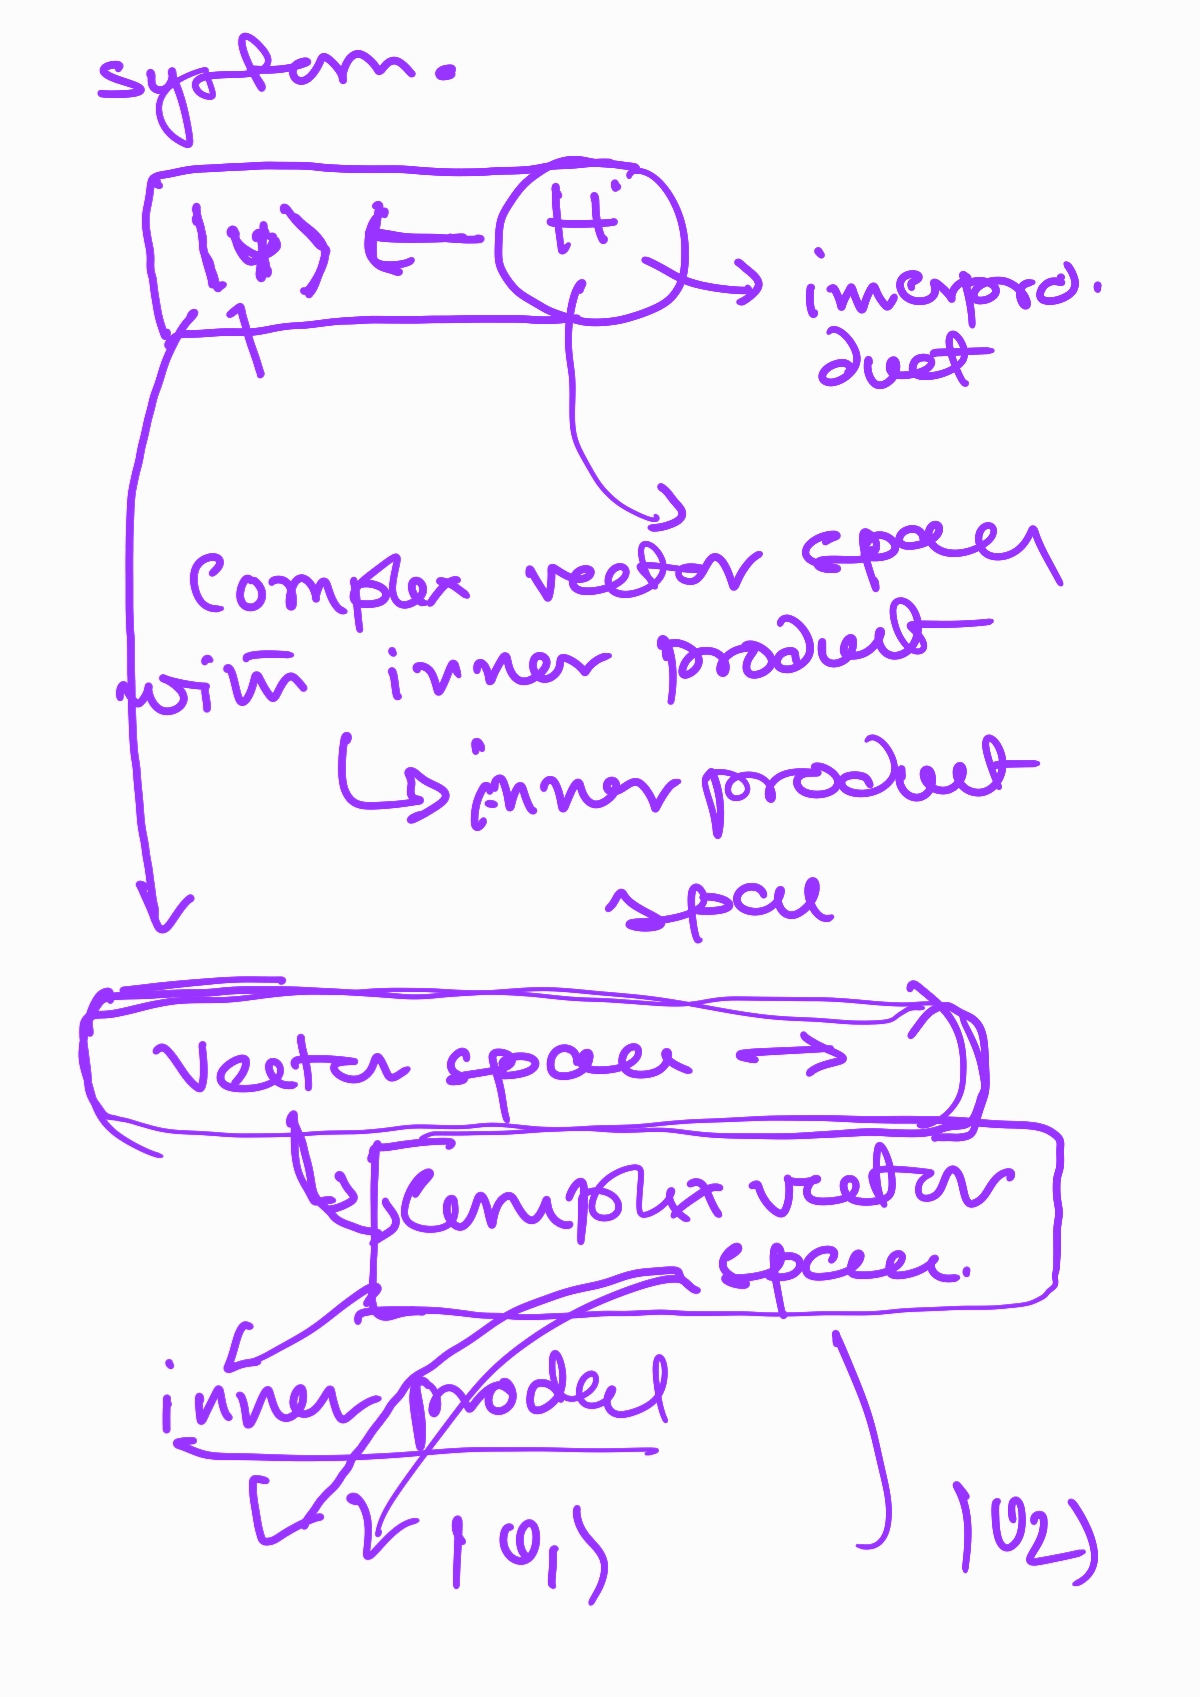 system.
|ψ⟩ ← H
inerpro.
duct
Complex vector space,
with inner product
↳ inner product
space
Vector space →
Complex vector
space.
inner prodct
|v₁⟩ |v₂⟩